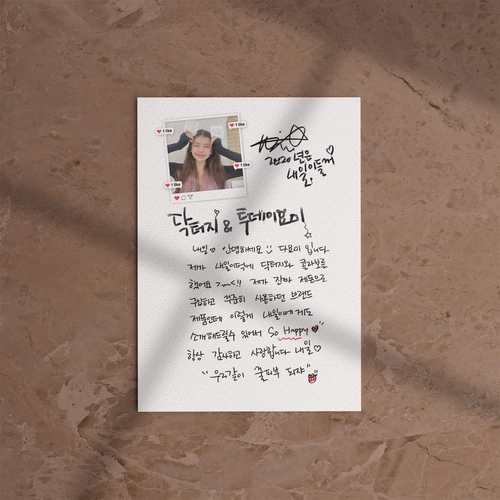 1 like
1 like
1 like
1 like
2020년은
내일이들꺼
닥터지 & 투데이요미
내일♡ 안녕하세요 :) 다요미 입니다.
제가 내일이덕에 닥터지와 콜라보를
했어요 제가 진짜 제돈으로
구입하고 꾸준히 사용하던 브랜드
제품인데 이렇게 내일이에게도
소개해드릴수 있어서 So Happy ♥"
항상 감사하고 사랑합니다 내일♡
"우리같이 꿀피부 되쟈"